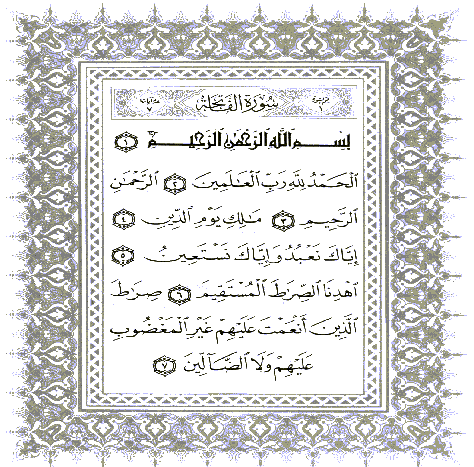 سورة الفاتحة
بسم الله الرحمن الرحيم ١
الحمد لله رب العالمين ٢ الرحمان
الرحيم ٣ مالك يوم الدين ٤
إياك نعبد وإياك نستعين ٥
اهدنا الصراط المستقيم ٦ صراط
الذين أنعمت عليهم غير المغضوب
عليهم ولا الضالين ٧